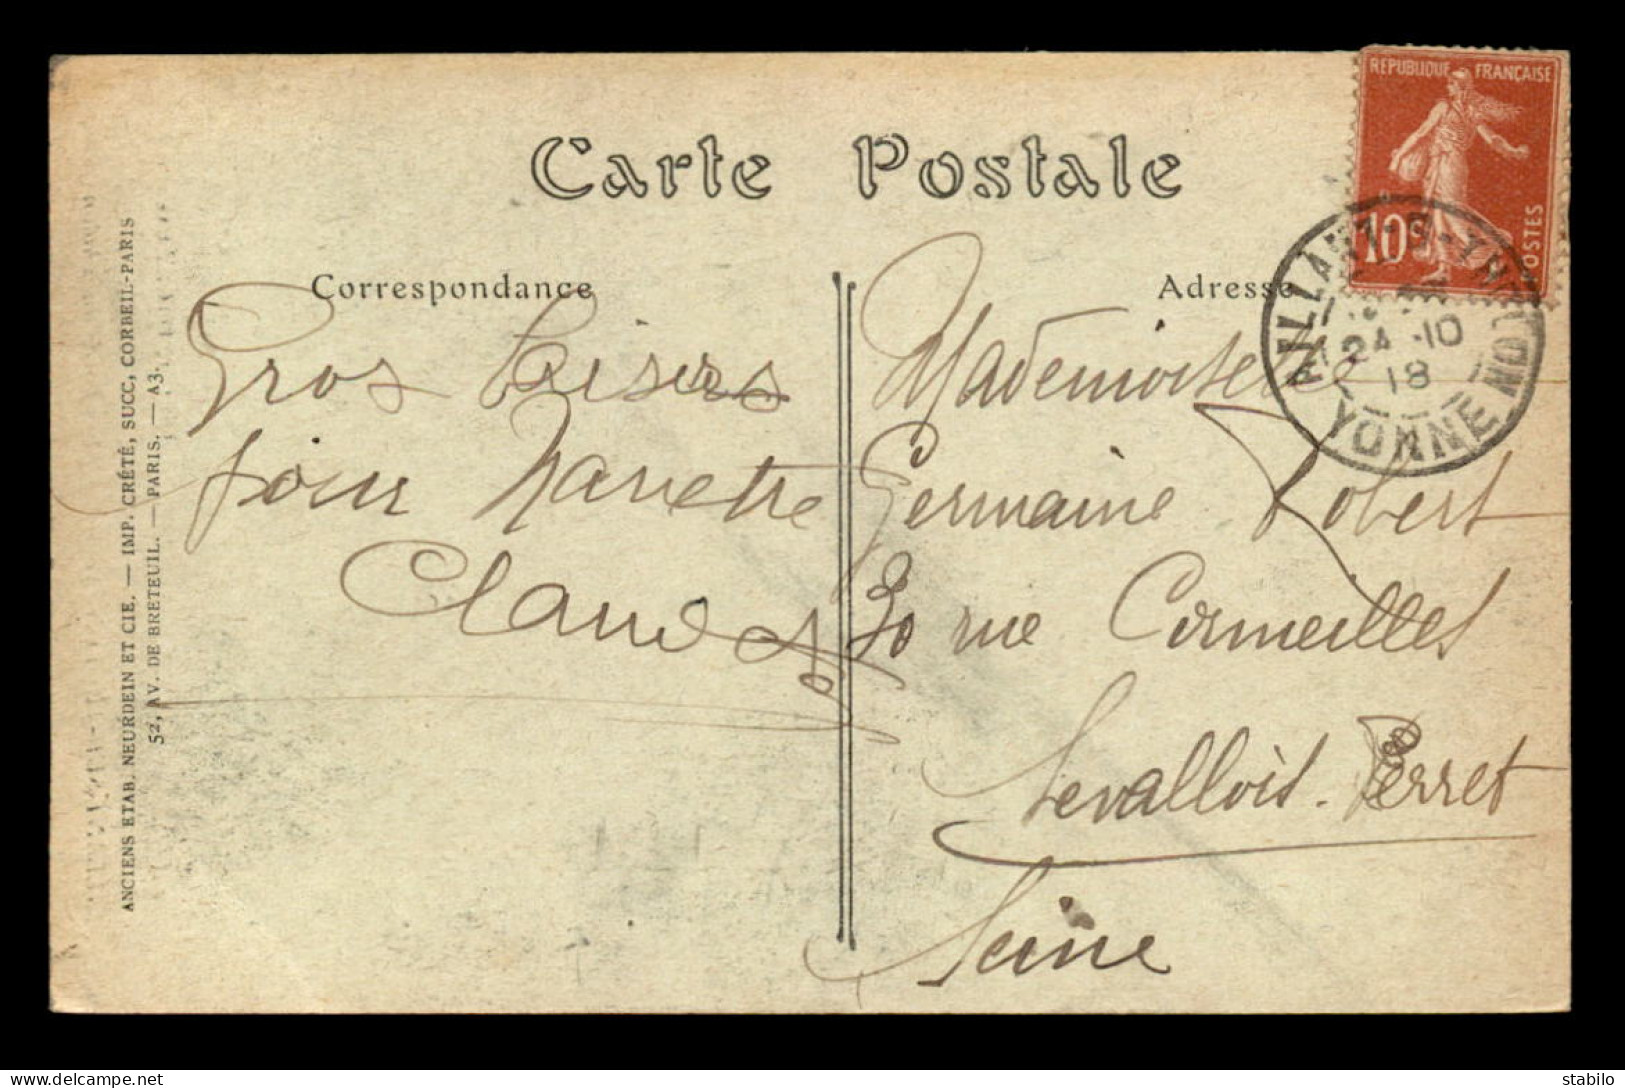 Carte Postale
Correspondance
Adresse
RÉPUBLIQUE FRANÇAISE
10c
POSTES
AILLANT-S-THOLON
24-10
18
YONNE
Gros baisers
pour Nanette
Mademoiselle
Germaine Robert
30 rue Cormeilles
Levallois-Perret
Seine
ANCIENS ETAB. NEURDEIN ET CIE. — IMP. CRÉTÉ, SUCC, CORBEIL-PARIS
52, AV. DE BRETEUIL. — PARIS. — A3.
delcampe.net
stabilo